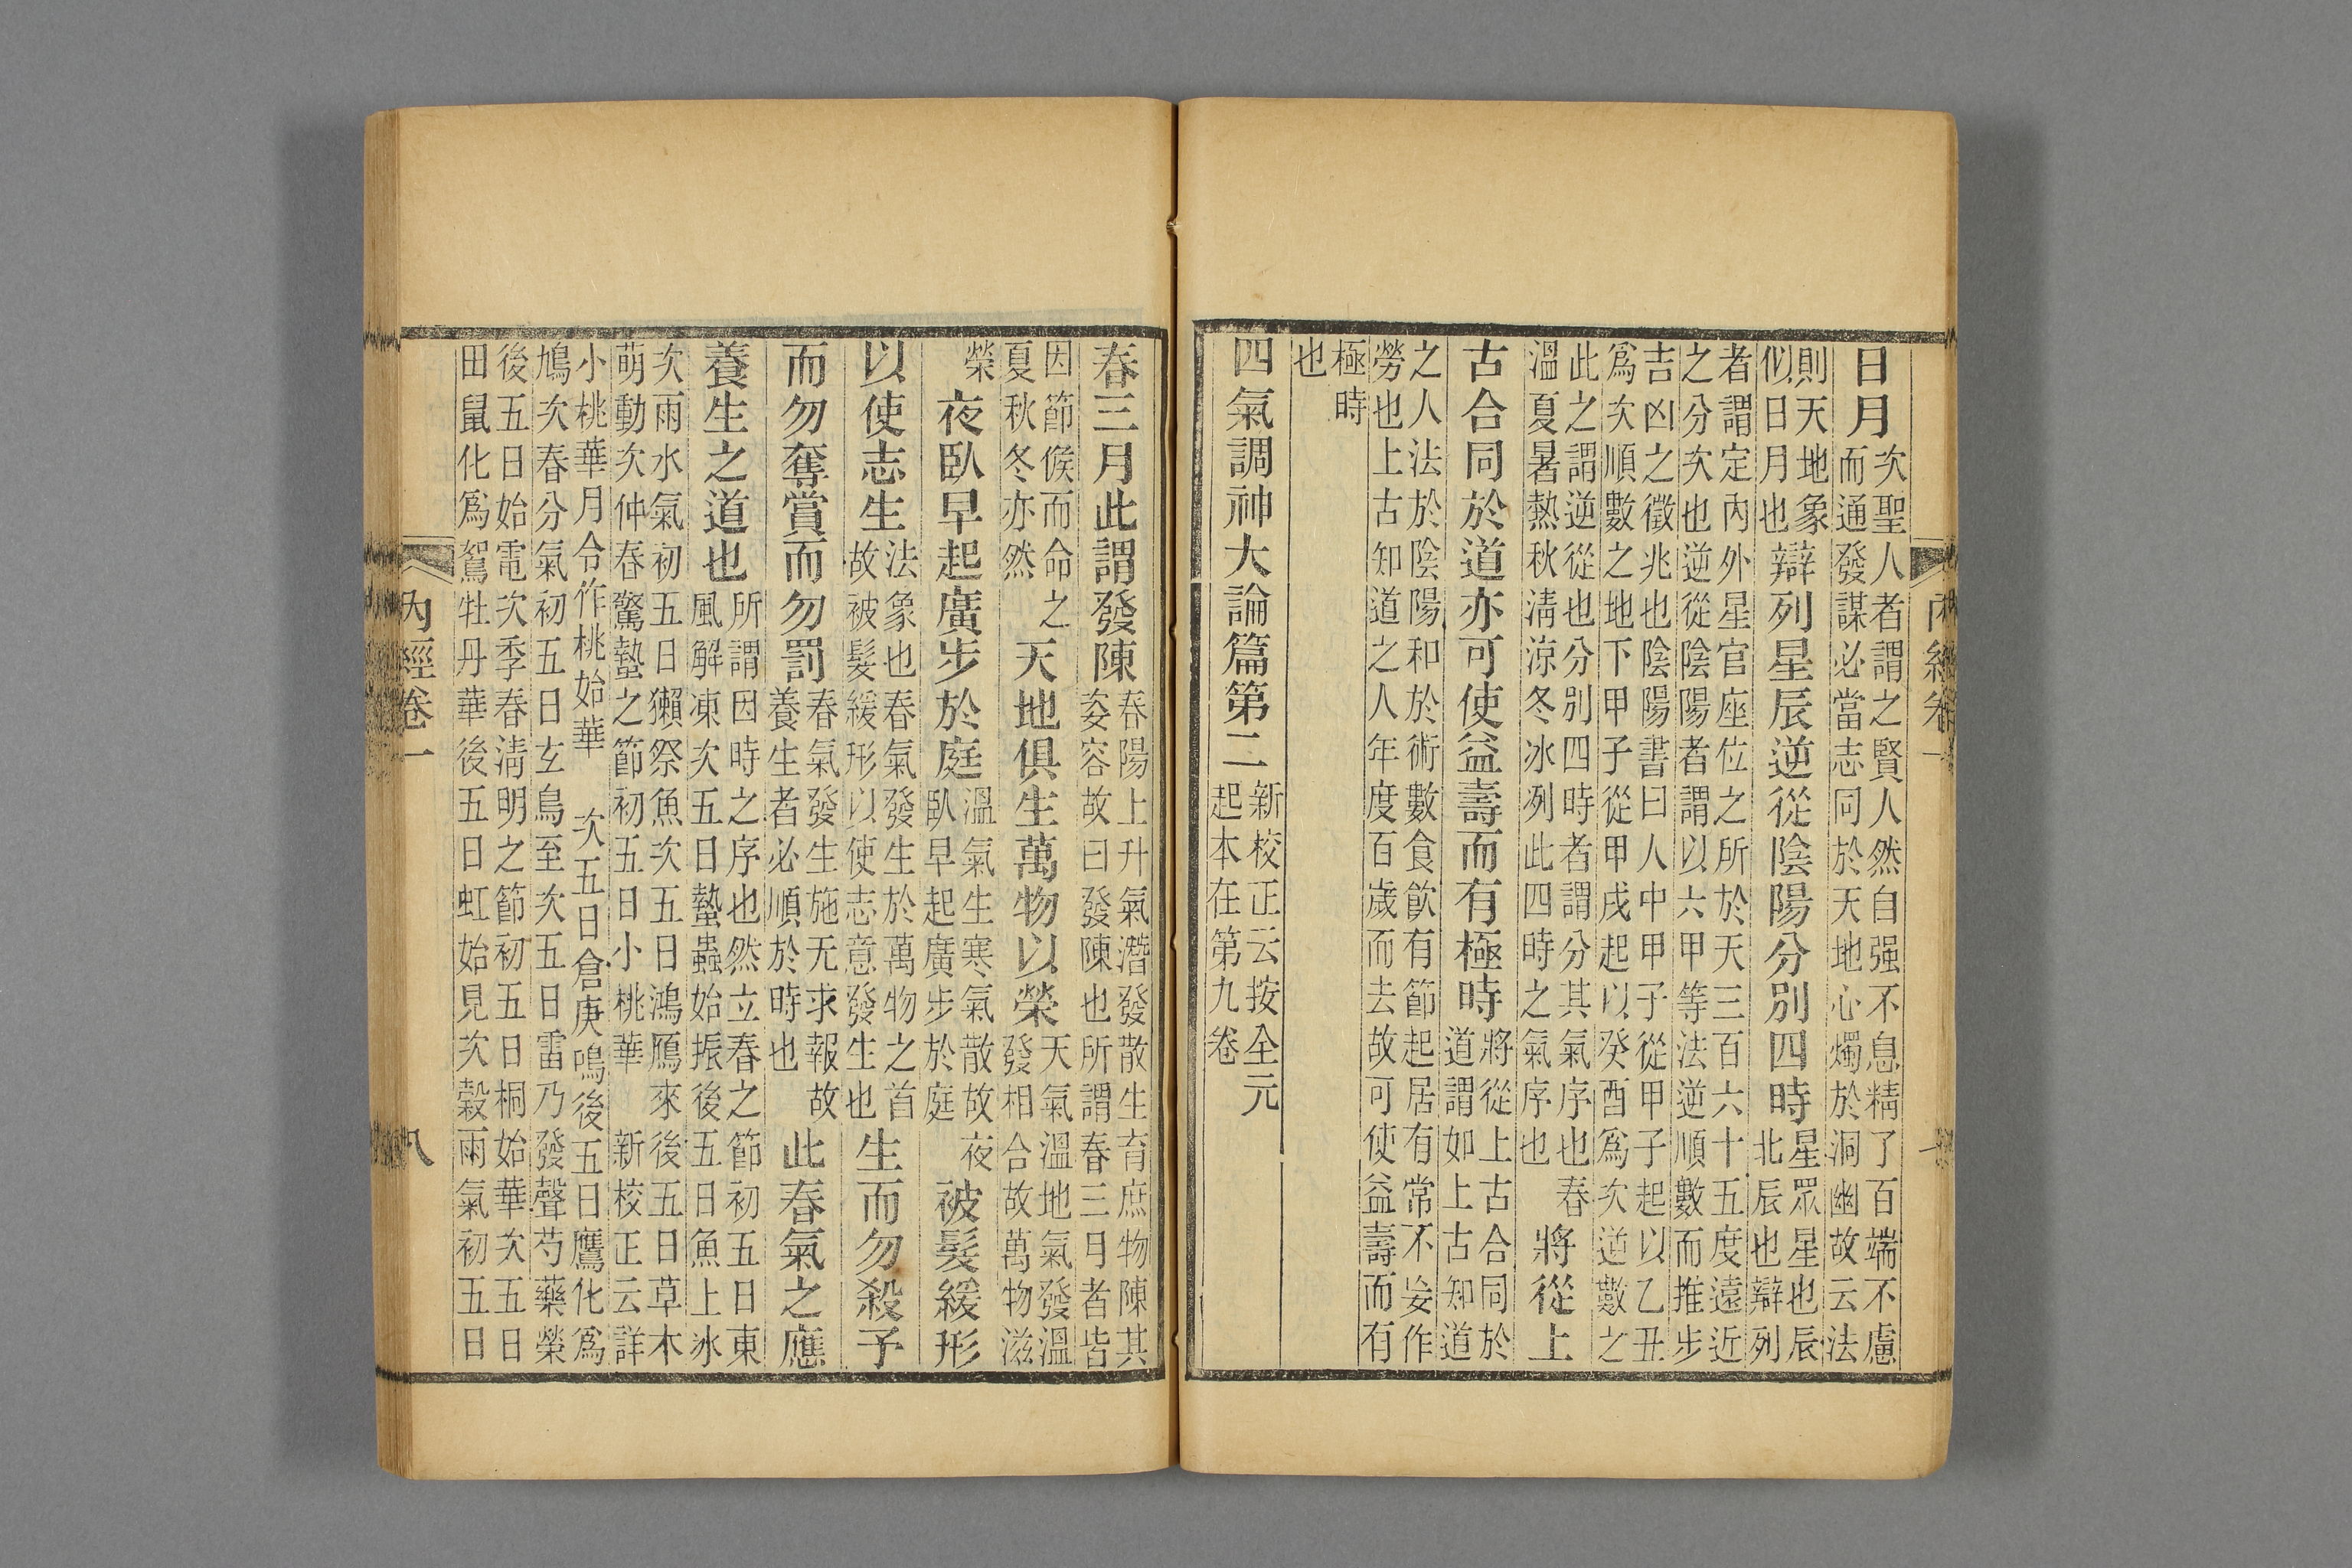 內經卷一
日月次聖人者謂之賢人然自强不息精了百端不慮而通發謀必當志同於天地心燭於洞幽故云法
則天地象似日月也辯列星辰逆從陰陽分別四時星眾星也辰北辰也辯列
者謂定內外星官座位之所於天三百六十五度遠近之分次也逆從陰陽者謂以六甲等法逆順數而推步
吉凶之徵兆也陰陽書曰人中甲子從甲子起以乙丑爲次順數之地下甲子從甲戌起以癸酉爲次逆數之
此之謂逆從也分別四時者謂分其氣序也春溫夏暑熱秋淸涼冬冰冽此四時之氣序也將從上
古合同於道亦可使益壽而有極時將從上古合同於道謂如上古知道
之人法於陰陽和於術數食飮有節起居有常不妄作勞也上古知道之人年度百歲而去故可使益壽而有
極時也
四氣調神大論篇第二新校正云按全元起本在第九卷
春三月此謂發陳春陽上升氣潛發散生育庶物陳其姿容故曰發陳也所謂春三月者皆
因節候而命之夏秋冬亦然天地俱生萬物以榮天氣溫地氣發溫發相合故萬物滋
榮夜臥早起廣步於庭溫氣生寒氣散故夜臥早起廣步於庭被髮緩形
以使志生法象也春氣發生於萬物之首故被髮緩形以使志意發生也生而勿殺予
而勿奪賞而勿罰春氣發生施无求報故養生者必順於時也此春氣之應
養生之道也所謂因時之序也然立春之節初五日東風解凍次五日蟄蟲始振後五日魚上冰
次雨水氣初五日獺祭魚次五日鴻鴈來後五日草木萌動次仲春驚蟄之節初五日小桃華新校正云詳
小桃華月令作桃始華次五日倉庚鳴後五日鷹化爲鳩次春分氣初五日玄鳥至次五日雷乃發聲芍藥榮
後五日始電次季春淸明之節初五日桐始華次五日田鼠化爲鴽牡丹華後五日虹始見次穀雨氣初五日
內經卷一
八